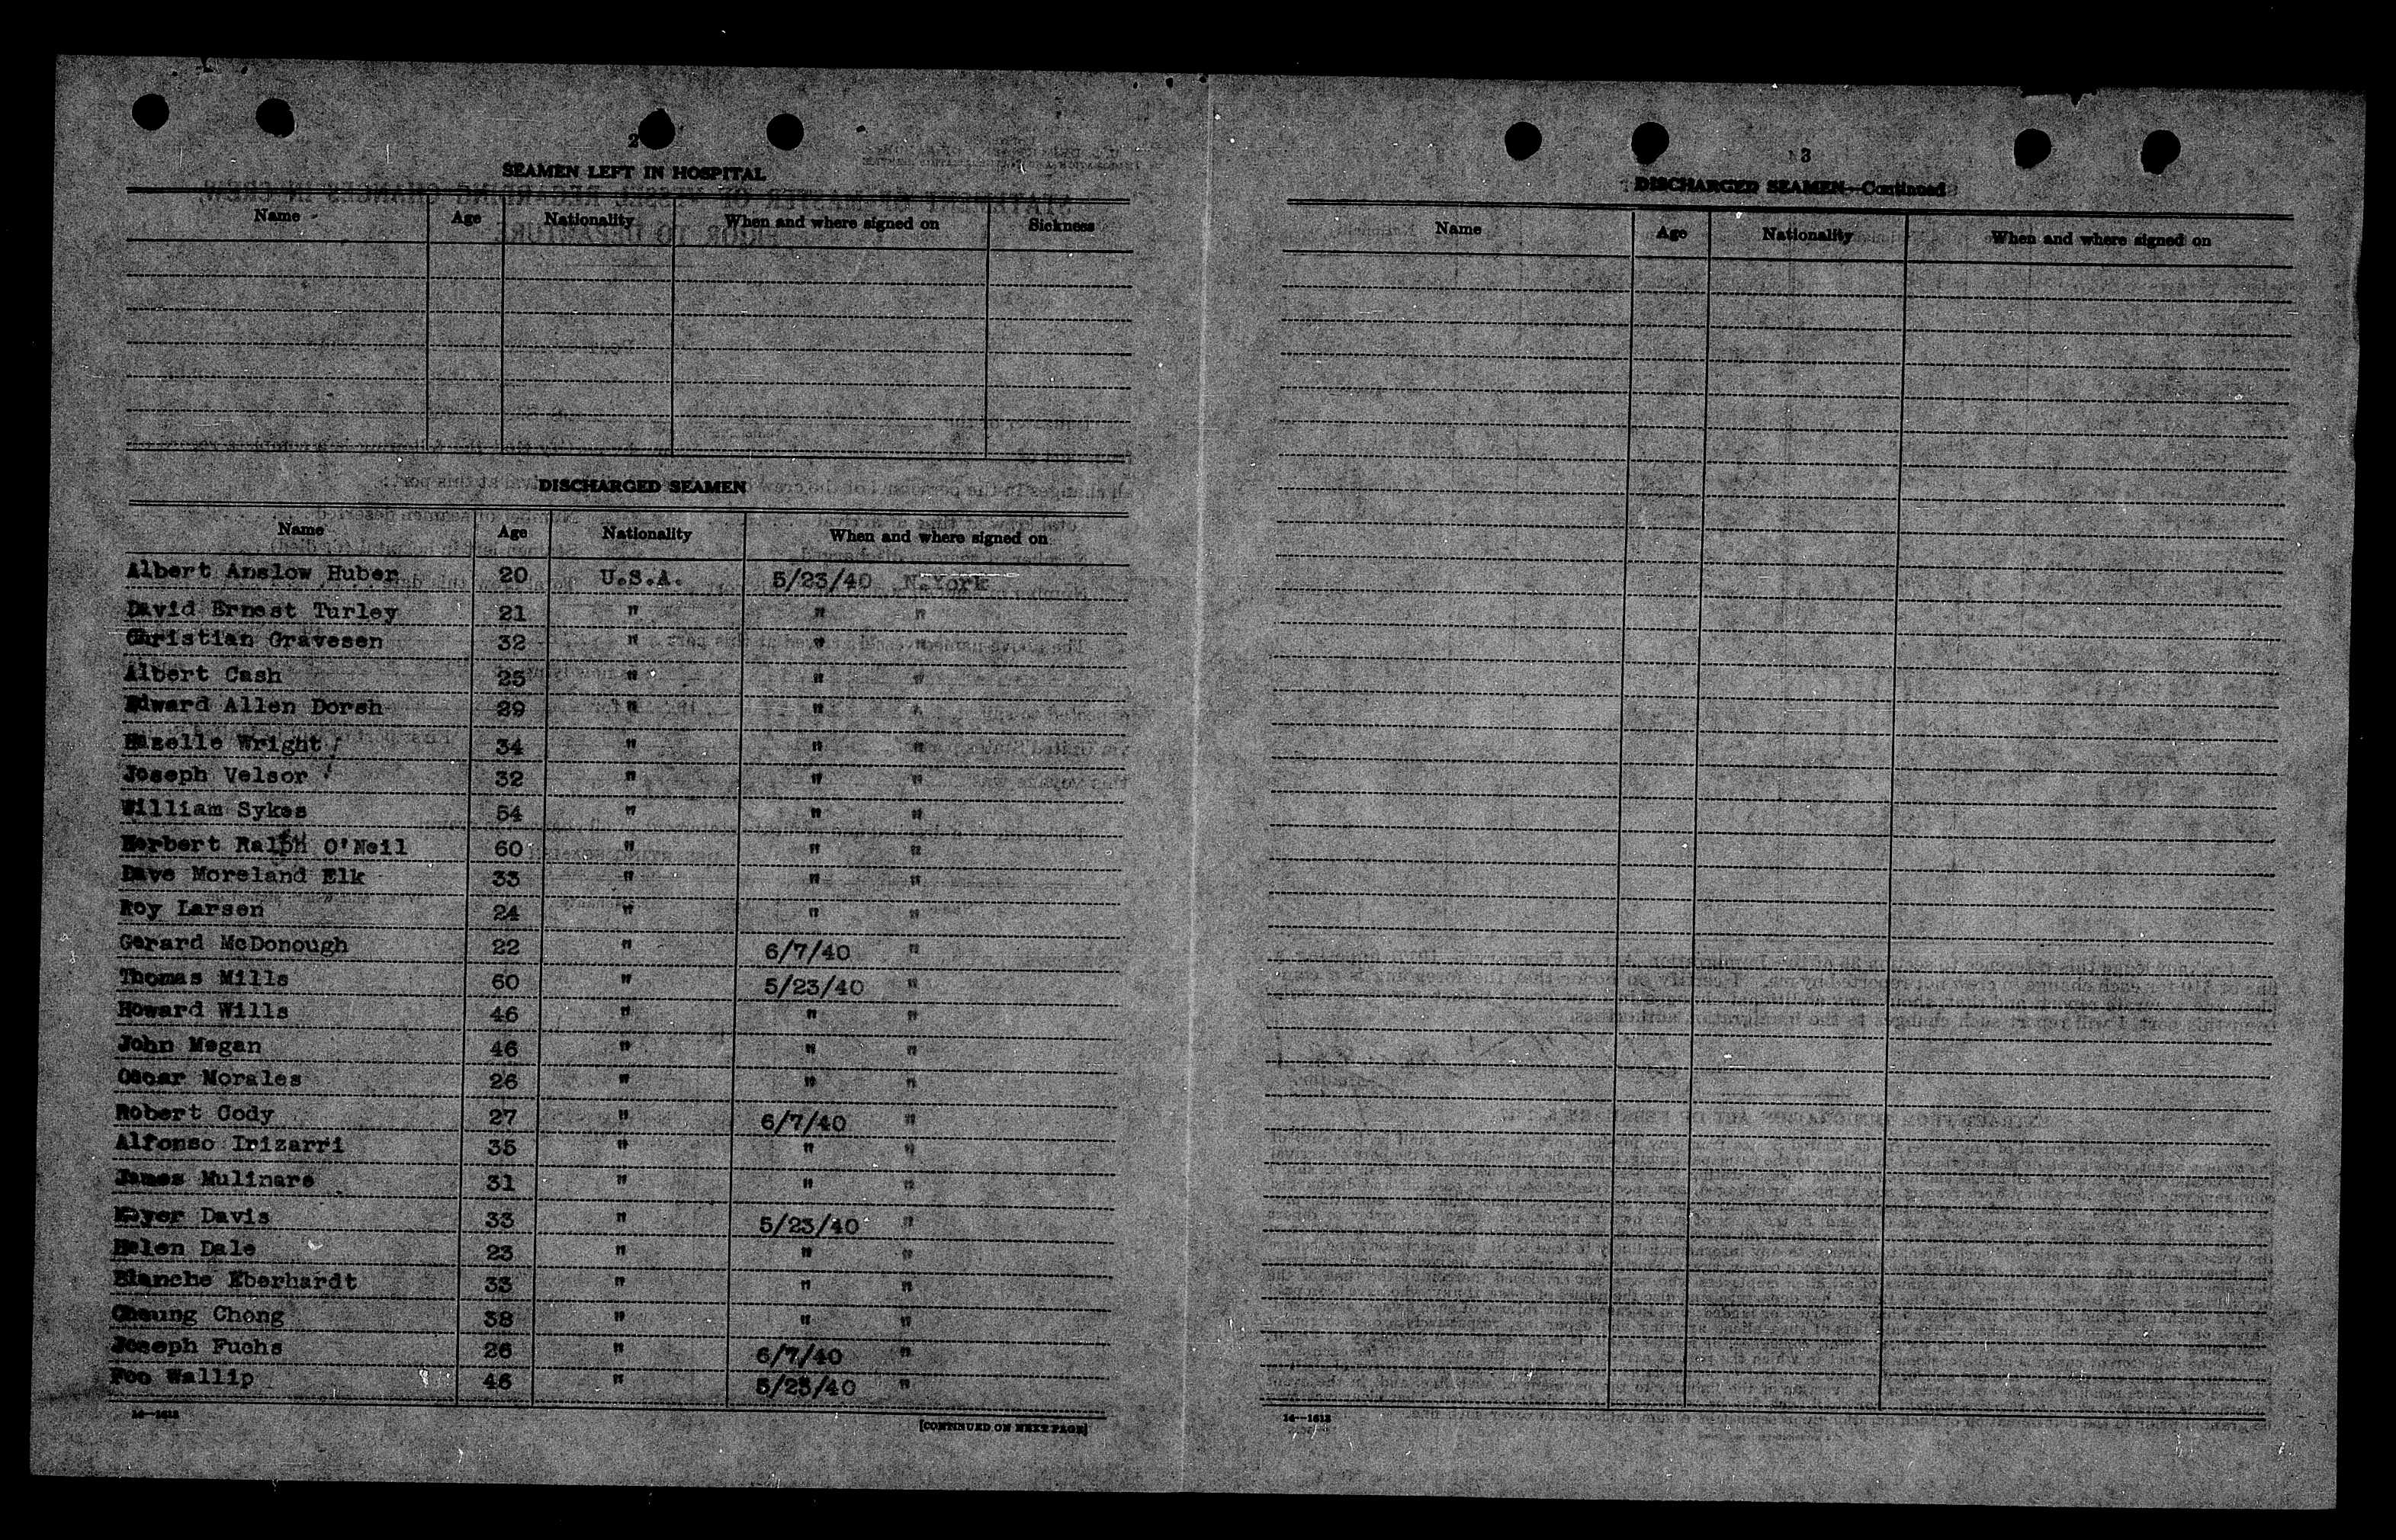 2
SEAMEN LEFT IN HOSPITAL
Name Age Nationality When and where signed on Sickness
DISCHARGED SEAMEN
Name Age Nationality When and where signed on
Albert Anslow Huber 20 U.S.A. 5/23/40 N.York
David Ernest Turley 21 " " "
Christian Gravesen 32 " " "
Albert Cash 25 " " "
Edward Allen Dorsh 29 " " "
Wright 34 " " "
Joseph Velsor 32 " " "
William Sykes 54 " " "
Herbert Ralph O'Neil 60 " " "
Dave Moreland Elk 33 " " "
Roy Larsen 24 " " "
Gerard McDonough 22 " 6/7/40 "
Thomas Mills 60 " 5/23/40 "
Howard Wills 46 " " "
John Megan 46 " " "
Oscar Morales 26 " " "
Robert Cody 27 " 6/7/40 "
Alfonso Irizarri 35 " " "
James Mulinare 31 " " "
Davis 33 " 5/23/40 "
Helen Dale 23 " " "
Blanche Eberhardt 33 " " "
Cheung Chong 38 " " "
Joseph Fuchs 26 " 6/7/40 "
Foo Wallip 46 " 5/23/40 "
[CONTINUED ON NEXT PAGE]
3
DISCHARGED SEAMEN—Continued
Name Age Nationality When and where signed on
14—1613